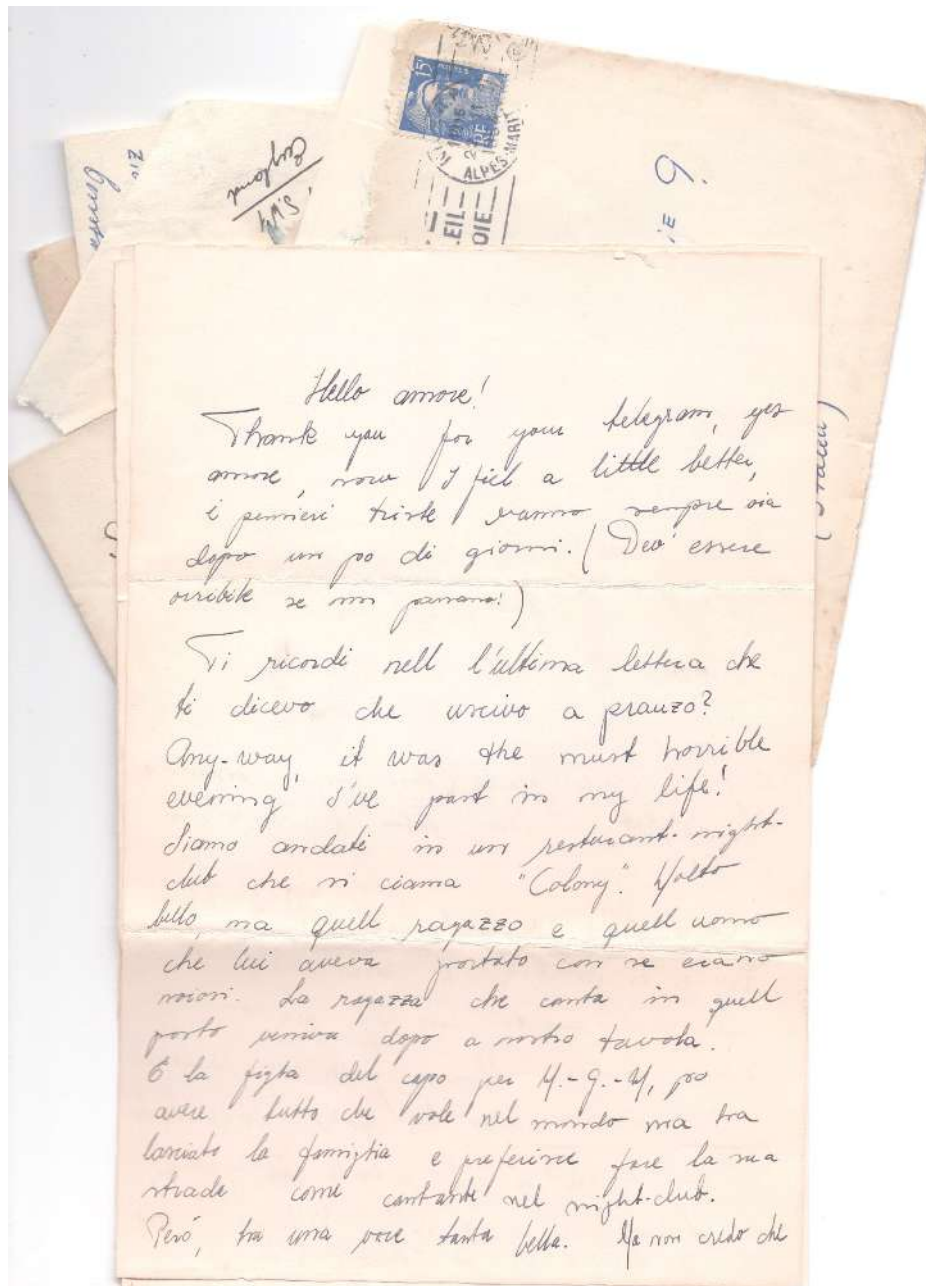 15
ALPES-MARIT
EIL
OIE
England
S.W.1
Hello amore!
Thank you for your telegram, yes
amore, now I fiel a little better,
i pensieri triste vanno sempre via
dopo un po di giorni. (Devó essere
orribile se non passano!)
Ti ricordi nell l'ultima lettera che
ti dicevo che uscivo a pranzo?
Any-way, it was the must horrible
evening I've past in my life!
Siamo andati in un resturant-night-
club che si ciama "Colony". Molto
bello, ma quell ragazzo e quell uomo
che lui aveva portato con se erano
noiosi. La ragazza che canta in quell
posto veniva dopo a nostro tavola.
É la figlia del capo per M.-G.-M, po
avere tutto che vole nel mondo ma ha
lasciato la famiglia e preferisce fare la sua
strade come cantante nel night-club.
Peró, ha una voce tanta bella. Ma non credo che